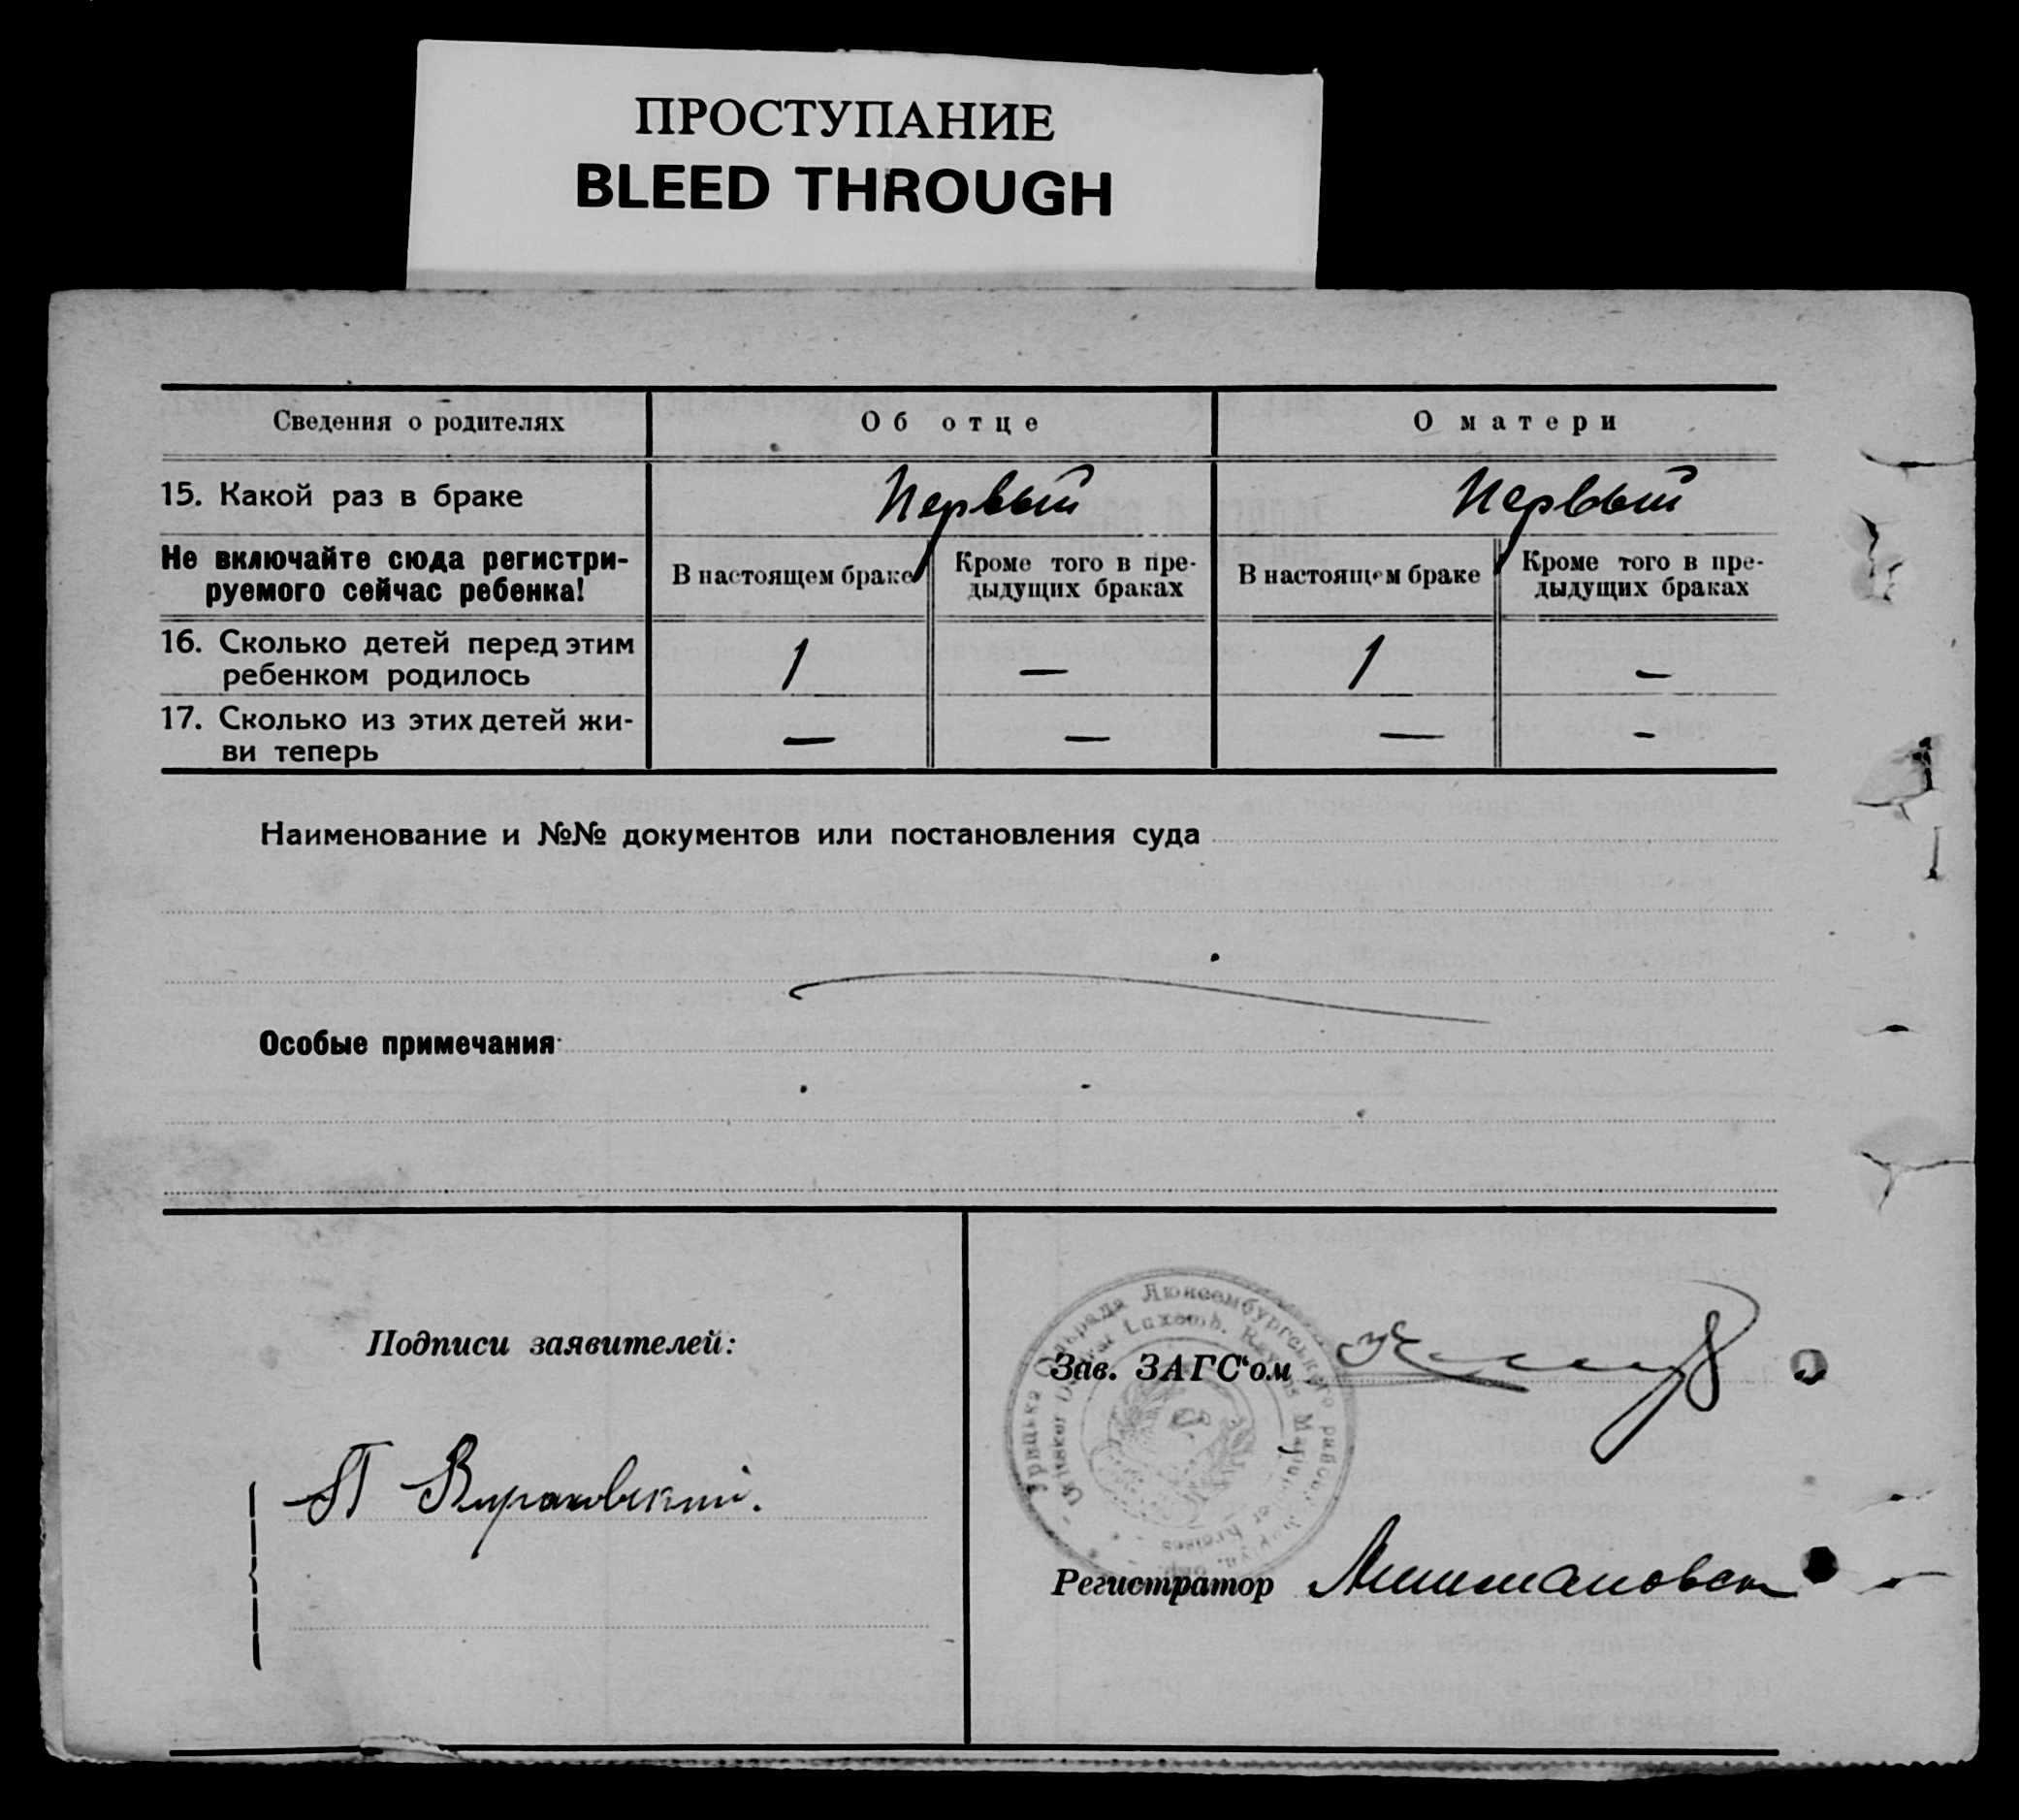 ПРОСТУПАНИЕ
BLEED THROUGH
Сведения о родителях Об отце О матери
15. Какой раз в браке Первый Первый
Не включайте сюда регистри-
руемого сейчас ребенка!
В настоящем браке
Кроме того в пре-
дыдущих браках
В настоящем браке
Кроме того в пре-
дыдущих браках
16. Сколько детей перед этим
ребенком родилось 1 — 1 —
17. Сколько из этих детей жи-
ви теперь — — — -
Наименование и №№ документов или постановления суда
Особые примечания
Подписи заявителей:
Зав. ЗАГС'ом
П
Регистратор
Люксембургського
Luxemb. Rayons